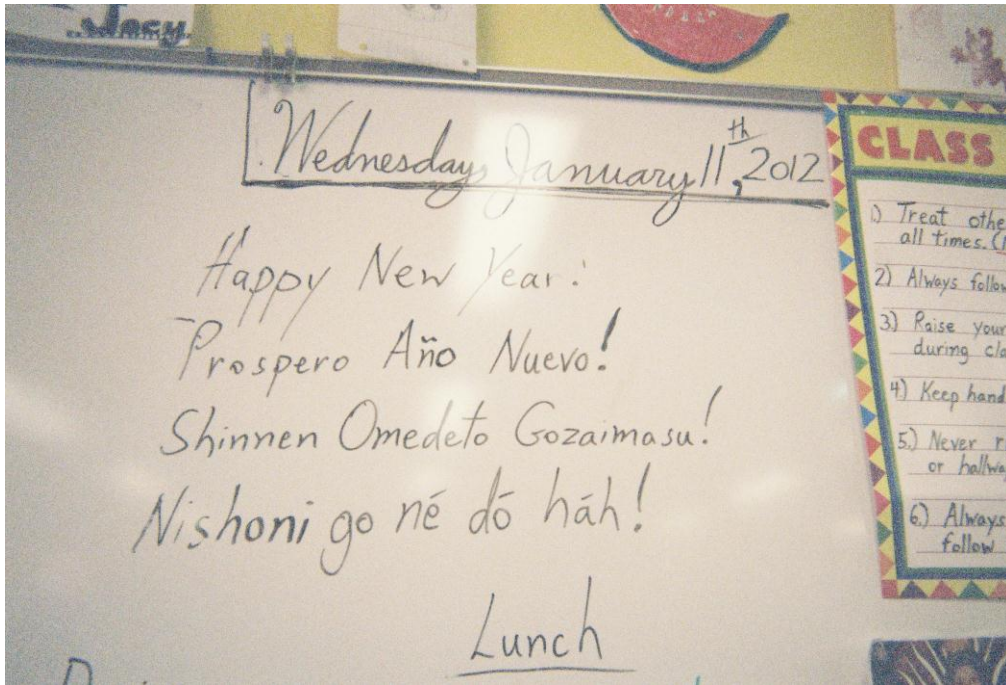 Jacy
Wednesday, January 11th, 2012
Happy New Year!
Prospero Año Nuevo!
Shinnen Omedeto Gozaimasu!
Nishoni go né dó háh!
Lunch
CLASS
1.) Treat othe
all times.
2.) Always follow
3.) Raise your
during cla
4.) Keep hand
5.) Never r
or hallwa
6.) Always
follow